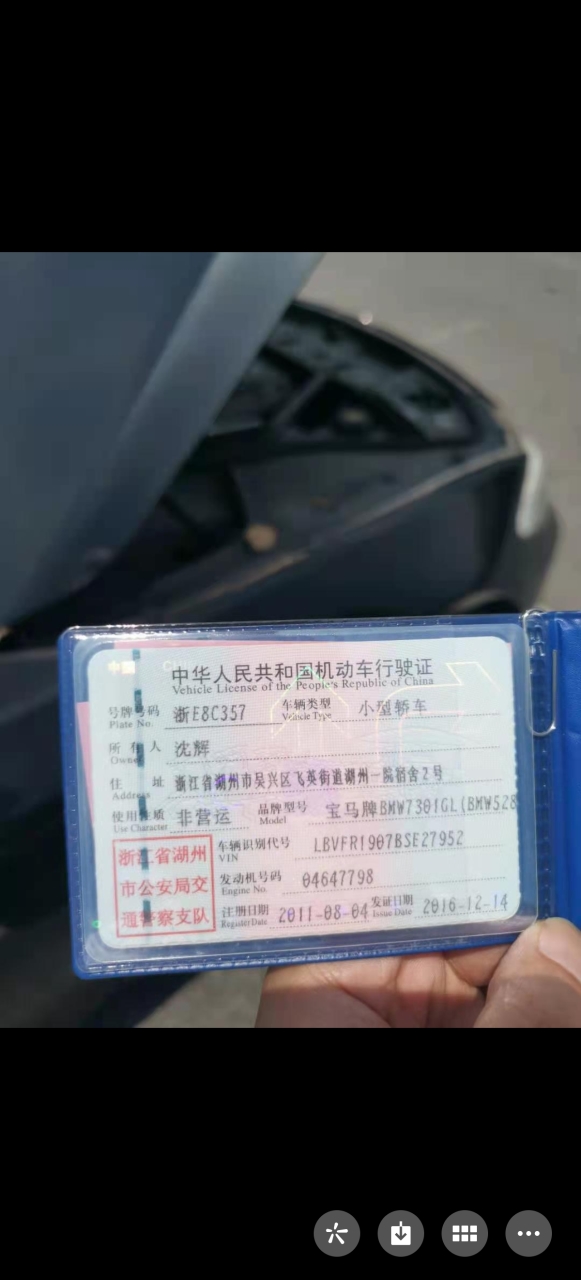 中国 CHI
中华人民共和国机动车行驶证
Vehicle License of the People's Republic of China
号牌号码 Plate No. 浙E8C357 车辆类型 Vehicle Type 小型轿车
所有人 Owner 沈辉
住址 Address 浙江省湖州市吴兴区飞英街道湖州一院宿舍2号
使用性质 Use Character 非营运 品牌型号 Model 宝马牌BMW7301GL(BMW528
浙江省湖州市公安局交通警察支队
车辆识别代号 VIN LBVFR1907BSE27952
发动机号码 Engine No. 04647798
注册日期 Register Date 2011-08-04 发证日期 Issue Date 2016-12-14